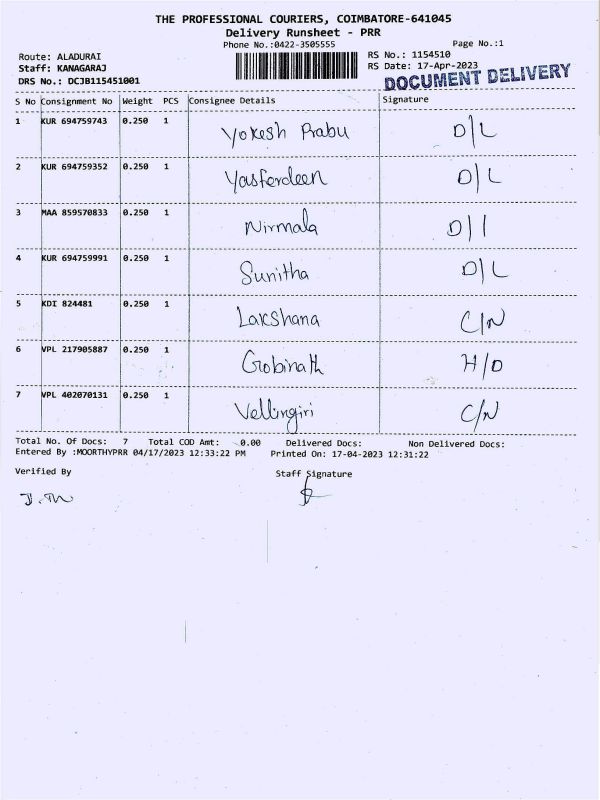 THE PROFESSIONAL COURIERS, COIMBATORE-641045
Delivery Runsheet - PRR
Phone No.:0422-3505555 Page No.:1
Route: ALADURAI RS No.: 1154510
Staff: KANAGARAJ RS Date: 17-Apr-2023
DRS No.: DCJB115451001 DOCUMENT DELIVERY
S No Consignment No Weight PCS Consignee Details Signature
1 KUR 694759743 0.250 1 Yokesh Prabu D/L
2 KUR 694759352 0.250 1 Yasferdeen D/L
3 MAA 859570833 0.250 1 Nirmala
4 KUR 694759991 0.250 1 Sunitha D/L
5 KDI 824481 0.250 1 Lakshana C/N
6 VPL 217905887 0.250 1 Gobinath H/D
7 VPL 402070131 0.250 1 Vellingiri C/N
Total No. Of Docs: 7 Total COD Amt: 0.00 Delivered Docs: Non Delivered Docs:
Entered By :MOORTHYPRR 04/17/2023 12:33:22 PM Printed On: 17-04-2023 12:31:22
Verified By Staff Signature